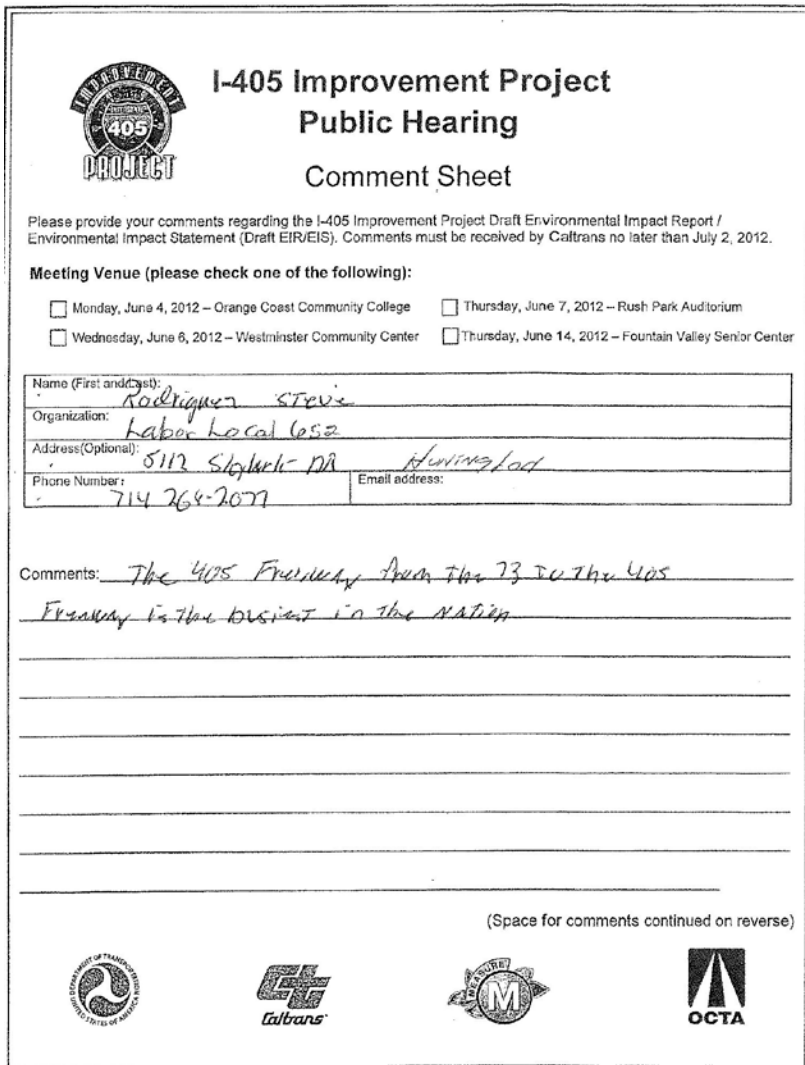 IMPROVEMENT
405
PROJECT
I-405 Improvement Project
Public Hearing
Comment Sheet
Please provide your comments regarding the I-405 Improvement Project Draft Environmental Impact Report /
Environmental Impact Statement (Draft EIR/EIS). Comments must be received by Caltrans no later than July 2, 2012.
Meeting Venue (please check one of the following):
Monday, June 4, 2012 – Orange Coast Community College
Thursday, June 7, 2012 – Rush Park Auditorium
Wednesday, June 6, 2012 – Westminster Community Center
Thursday, June 14, 2012 – Fountain Valley Senior Center
Name (First and Last):
Rodriguez Steve
Organization:
Labor Local 652
Address(Optional):
5112 DR
Phone Number:
714 264-2077
Email address:
Comments: The 405 Freeway from the 73 to the 405
Freeway is the busiest in the Nation
(Space for comments continued on reverse)
DEPARTMENT OF TRANSPORTATION
UNITED STATES OF AMERICA
Caltrans
MEASURE
M
OCTA